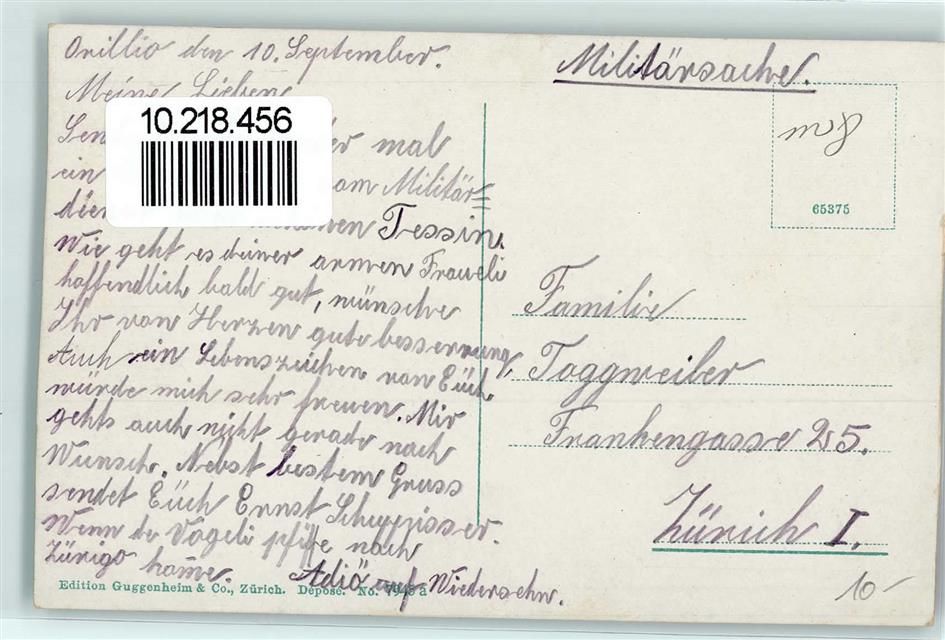 Orillio den 10. September.
Meine Lieben
10.218.456
mal
ein am Militär=
Tessin.
Wie geht es deiner armen Fraueli
hoffendlich bald gut, wünsche
Ihr von Herzen gute besserrung,
Auch ein Lebenszeichen von Eüch
würde mich sehr freuen. Mir
gehts auch nicht gerade nach
Wunsch. Nebst bestem Gruss
sendet Eüch Ernst Schuppisser.
Wenn de Vögeli pfiffe nach
Zürigo kome. Adiö auf Wiedersehn.
Edition Guggenheim & Co., Zürich. Deposé. No. 7943 a
Militärsache.
65375
Familie
Toggweiler
Frankengasse 25.
Zürich I.
10-